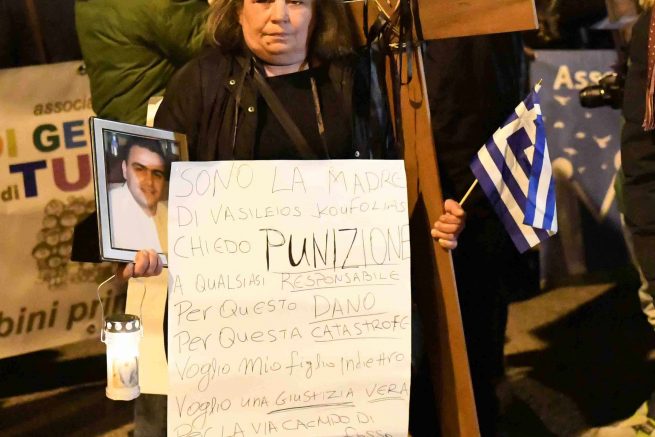 SONO LA MADRE
DI VASILEIOS KOUFOLIAS
CHIEDO PUNIZIONE
A QUALSIASI RESPONSABILE
PER QUESTO DANO
PER QUESTA CATASTROFE
VOGLIO MIO FIGLIO INDIETRO
VOGLIO UNA GIUSTIZIA VERA
associa
DI GE
di TU
bini pri
Ass